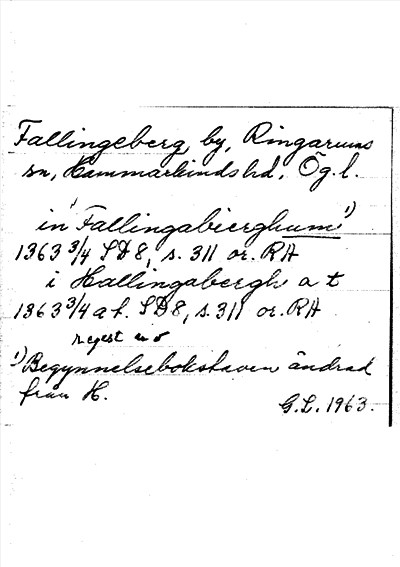 Fallingeberg, by, Ringarums
sn, Hammarkinds hd, Ög. l.
in Fallingabierghum 1)
1363 3/4 SD 8, s. 311 or. RA
i Hallingabergh a t
1363 3/4 a f. SD 8, s. 311. or. RA
regest en 5
1) Begynnelsebokstaven ändrad
från H.
G.L. 1963.